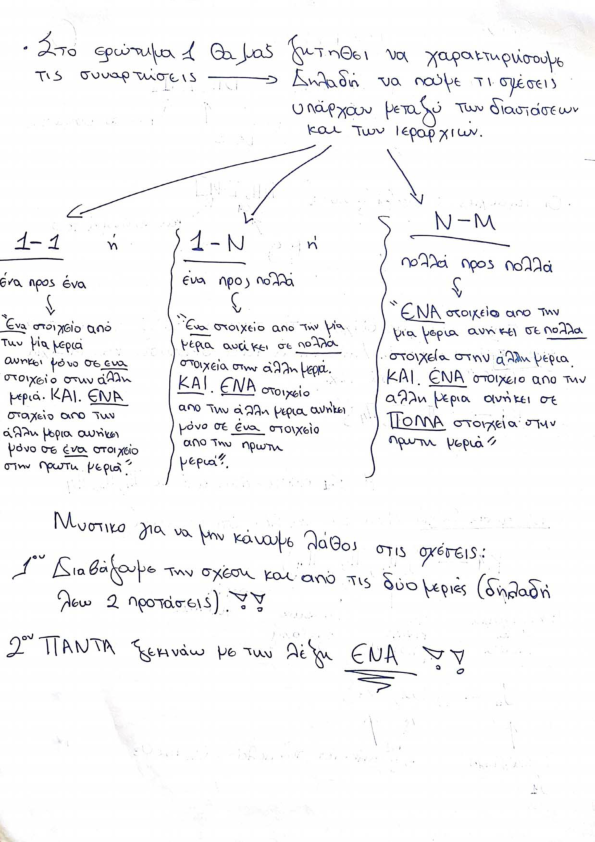 • Στο ερώτημα 1 θα μας ζητηθεί να χαρακτηρίσουμε
τις συναρτήσεις → Δηλαδή να πούμε τι σχέσεις
υπάρχουν μεταξύ των διαστάσεων
και των ιεραρχιών.
1-1 ή
ένα προς ένα
"Ένα στοιχείο από
την μία μεριά
ανήκει μόνο σε ένα
στοιχείο στην άλλη
μεριά. ΚΑΙ. ΕΝΑ
στοιχείο από την
άλλη μεριά ανήκει
μόνο σε ένα στοιχείο
στην πρώτη μεριά".
1-N ή
ένα προς πολλά
"Ένα στοιχείο από την μία
μεριά ανήκει σε πολλά
στοιχεία στην άλλη μεριά.
ΚΑΙ. ΕΝΑ στοιχείο
από την άλλη μεριά ανήκει
μόνο σε ένα στοιχείο
από την πρώτη
μεριά".
N-M
πολλά προς πολλά
"ΕΝΑ στοιχείο απο την
μία μεριά ανήκει σε πολλα
στοιχεία στην άλλη μερια.
ΚΑΙ. ΕΝΑ στοιχείο απο την
άλλη μεριά ανήκει σε
ΠΟΛΛΑ στοιχεία στην
πρωτη μεριά"
Μυστικο για να μην κάνουμε λάθος στις σχέσεις:
1ον Διαβάζουμε την σχέση και από τις δύο μεριές (δηλαδή
λεω 2 προτάσεις).!!
2ον ΠΑΝΤΑ ξεκινάω με την λέξη ΕΝΑ !!